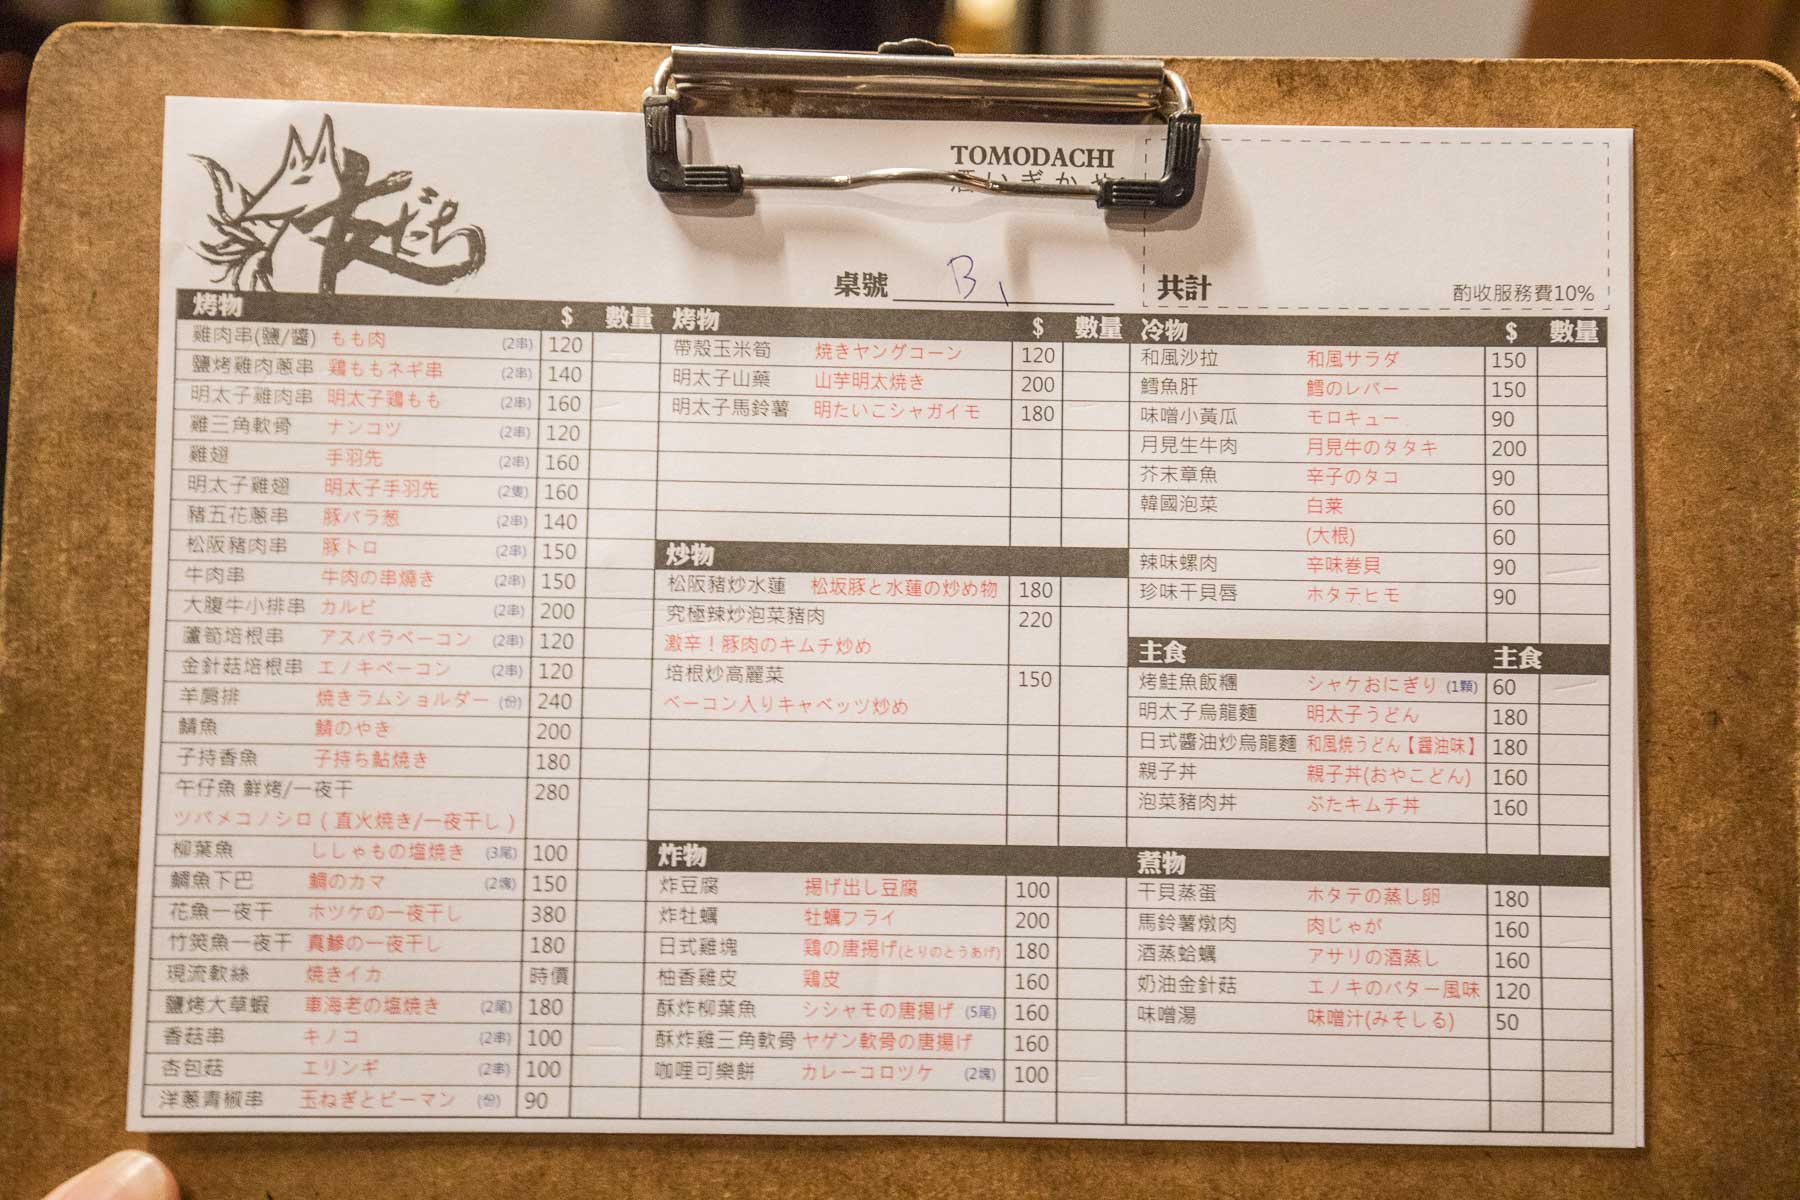 友だち
TOMODACHI
桌號 B1
共計
酌收服務費10%
烤物 $ 數量
雞肉串(鹽/醬) もも肉 (2串) 120
鹽烤雞肉蔥串 鶏ももネギ串 (2串) 140
明太子雞肉串 明太子鶏もも (2串) 160
雞三角軟骨 ナンコツ (2串) 120
雞翅 手羽先 (2串) 160
明太子雞翅 明太子手羽先 (2隻) 160
豬五花蔥串 豚バラ葱 (2串) 140
松阪豬肉串 豚トロ (2串) 150
牛肉串 牛肉の串燒き (2串) 150
大腹牛小排串 カルビ (2串) 200
蘆筍培根串 アスパラベーコン (2串) 120
金針菇培根串 エノキベーコン (2串) 120
羊肩排 焼きラムショルダー (份) 240
鯖魚 鯖のやき 200
子持香魚 子持ち鮎焼き 180
午仔魚 鮮烤/一夜干 280
ツバメコノシロ ( 直火焼き/一夜干し )
柳葉魚 ししゃもの塩焼き (3尾) 100
鯛魚下巴 鯛のカマ (2塊) 150
花魚一夜干 ホツケの一夜干し 380
竹筴魚一夜干 真鰺の一夜干し 180
現流軟絲 焼きイカ 時價
鹽烤大草蝦 車海老の塩焼き (2尾) 180
香菇串 キノコ (2串) 100
杏包菇 エリンギ (2串) 100
洋蔥青椒串 玉ねぎとピーマン (份) 90
烤物 $ 數量
帶殼玉米筍 焼きヤングコーン 120
明太子山藥 山芋明太焼き 200
明太子馬鈴薯 明たいこシャガイモ 180
炒物
松阪豬炒水蓮 松坂豚と水蓮の炒め物 180
究極辣炒泡菜豬肉 220
激辛！豚肉のキムチ炒め
培根炒高麗菜 150
ベーコン入りキャベッツ炒め
炸物
炸豆腐 揚げ出し豆腐 100
炸牡蠣 牡蠣フライ 200
日式雞塊 鶏の唐揚げ(とりのとうあげ) 180
柚香雞皮 鶏皮 160
酥炸柳葉魚 シシャモの唐揚げ (5尾) 160
酥炸雞三角軟骨 ヤゲン軟骨の唐揚げ 160
咖哩可樂餅 カレーコロツケ (2塊) 100
冷物 $ 數量
和風沙拉 和風サラダ 150
鱈魚肝 鱈のレバー 150
味噌小黃瓜 モロキュー 90
月見生牛肉 月見牛のタタキ 200
芥末章魚 辛子のタコ 90
韓國泡菜 白菜 60
(大根) 60
辣味螺肉 辛味巻貝 90
珍味干貝唇 ホタテヒモ 90
主食 主食
烤鮭魚飯糰 シャケおにぎり (1顆) 60
明太子烏龍麵 明太子うどん 180
日式醬油炒烏龍麵 和風焼うどん【醤油味】 180
親子丼 親子丼(おやこどん) 160
泡菜豬肉丼 ぶたキムチ丼 160
煮物
干貝蒸蛋 ホタテの蒸し卵 180
馬鈴薯燉肉 肉じゃが 160
酒蒸蛤蠣 アサリの酒蒸し 160
奶油金針菇 エノキのバター風味 120
味噌湯 味噌汁(みそしる) 50